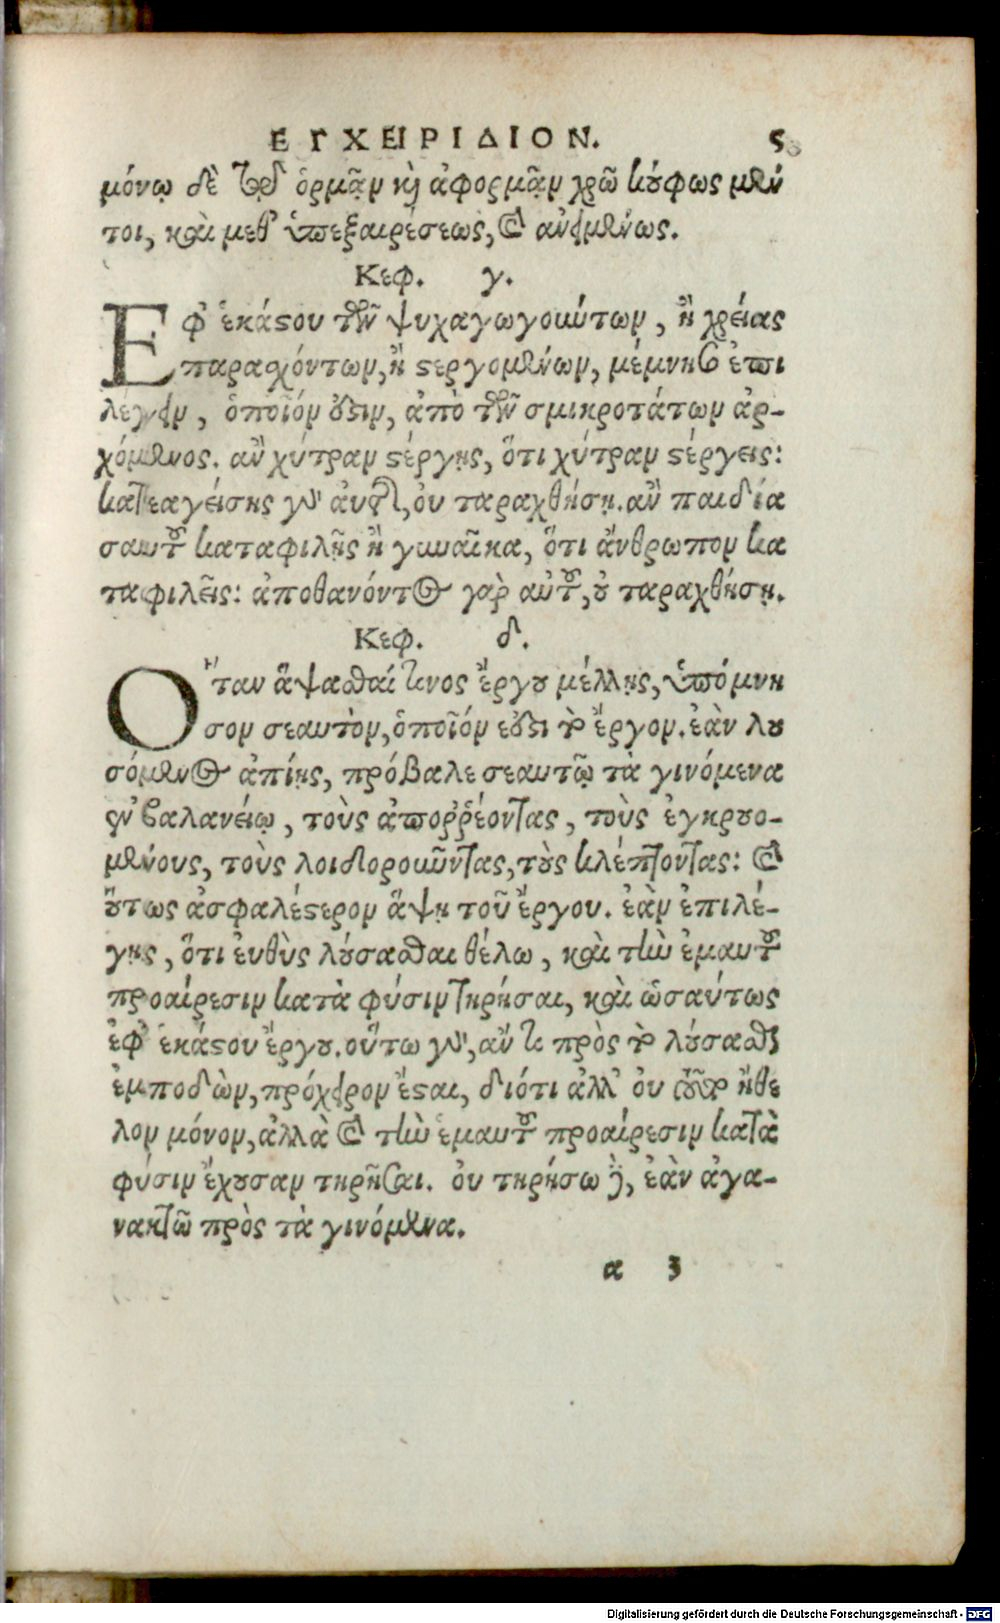 ΕΓΧΕΙΡΙΔΙΟΝ. 5
μόνῳ δὲ τῷ ὁρμᾷν κὶ ἀφορμᾷν χρῶ κούφως μέν
τοι, καὶ μεθ' ὑπεξαιρέσεως, καὶ ἀνειμένως.
Κεφ. γ.
Εφ' ἑκάστου τῶν ψυχαγωγούντων, ἢ χρείας
παρασχόντων, ἢ στεργομένων, μέμνησο ἐπι
λέγειν, ὁποῖόν ὅστιν, ἀπὸ τῶν σμικροτάτων ἀρ-
χόμενος. ἂν χύτραν στέργῃς, ὅτι χύτραν στέργεις:
κατεαγείσης γὰρ ἀυτῆς, ὀυ ταραχθήσῃ. ἂν παιδία
σαυτοῦ καταφιλῇς ἢ γυναῖκα, ὅτι ἄνθρωπον κα
ταφιλεῖς: ἀποθανόντος γὰρ αὐτοῦ, οὐ ταραχθήσῃ.
Κεφ. δ.
Οταν ἅψασθαί τινος ἔργου μέλλῃς, ὑπόμνη
σον σεαυτὸν, ὁποῖόν ἐστι τὸ ἔργον. ἐὰν λου
σόμενος ἀπίῃς, πρόβαλε σεαυτῷ τὰ γινόμενα
ἐν βαλανείῳ, τοὺς ἀποῤῥέοντας, τοὺς ἐγκρουο-
μένους, τοὺς λοιδοροῦντας, τοὺς κλέπτοντας: καὶ
οὕτως ἀσφαλέστερον ἅψῃ τοῦ ἔργου. ἐὰν ἐπιλέ-
γῃς, ὅτι ἐυθὺς λούσασθαι θέλω, καὶ τὴν ἐμαυτοῦ
προαίρεσιν κατὰ φύσιν τηρῆσαι, καὶ ὡσαύτως
ἐφ' ἑκάστου ἔργου. οὕτω γὰρ, ἄν τι πρὸς τὸ λούσασθαι
ἐμποδὼν, πρόχειρον ἔσται, διότι ἀλλ' ὀυ τοῦτο ἤθε
λον μόνον, ἀλλὰ καὶ τὴν ἐμαυτοῦ προαίρεσιν κατὰ
φύσιν ἔχουσαν τηρῆσαι. ὀυ τηρήσω δὲ, ἐὰν ἀγα-
νακτῶ πρὸς τὰ γινόμενα.
α 3
Digitalisierung gefördert durch die Deutsche Forschungsgemeinschaft - DFG